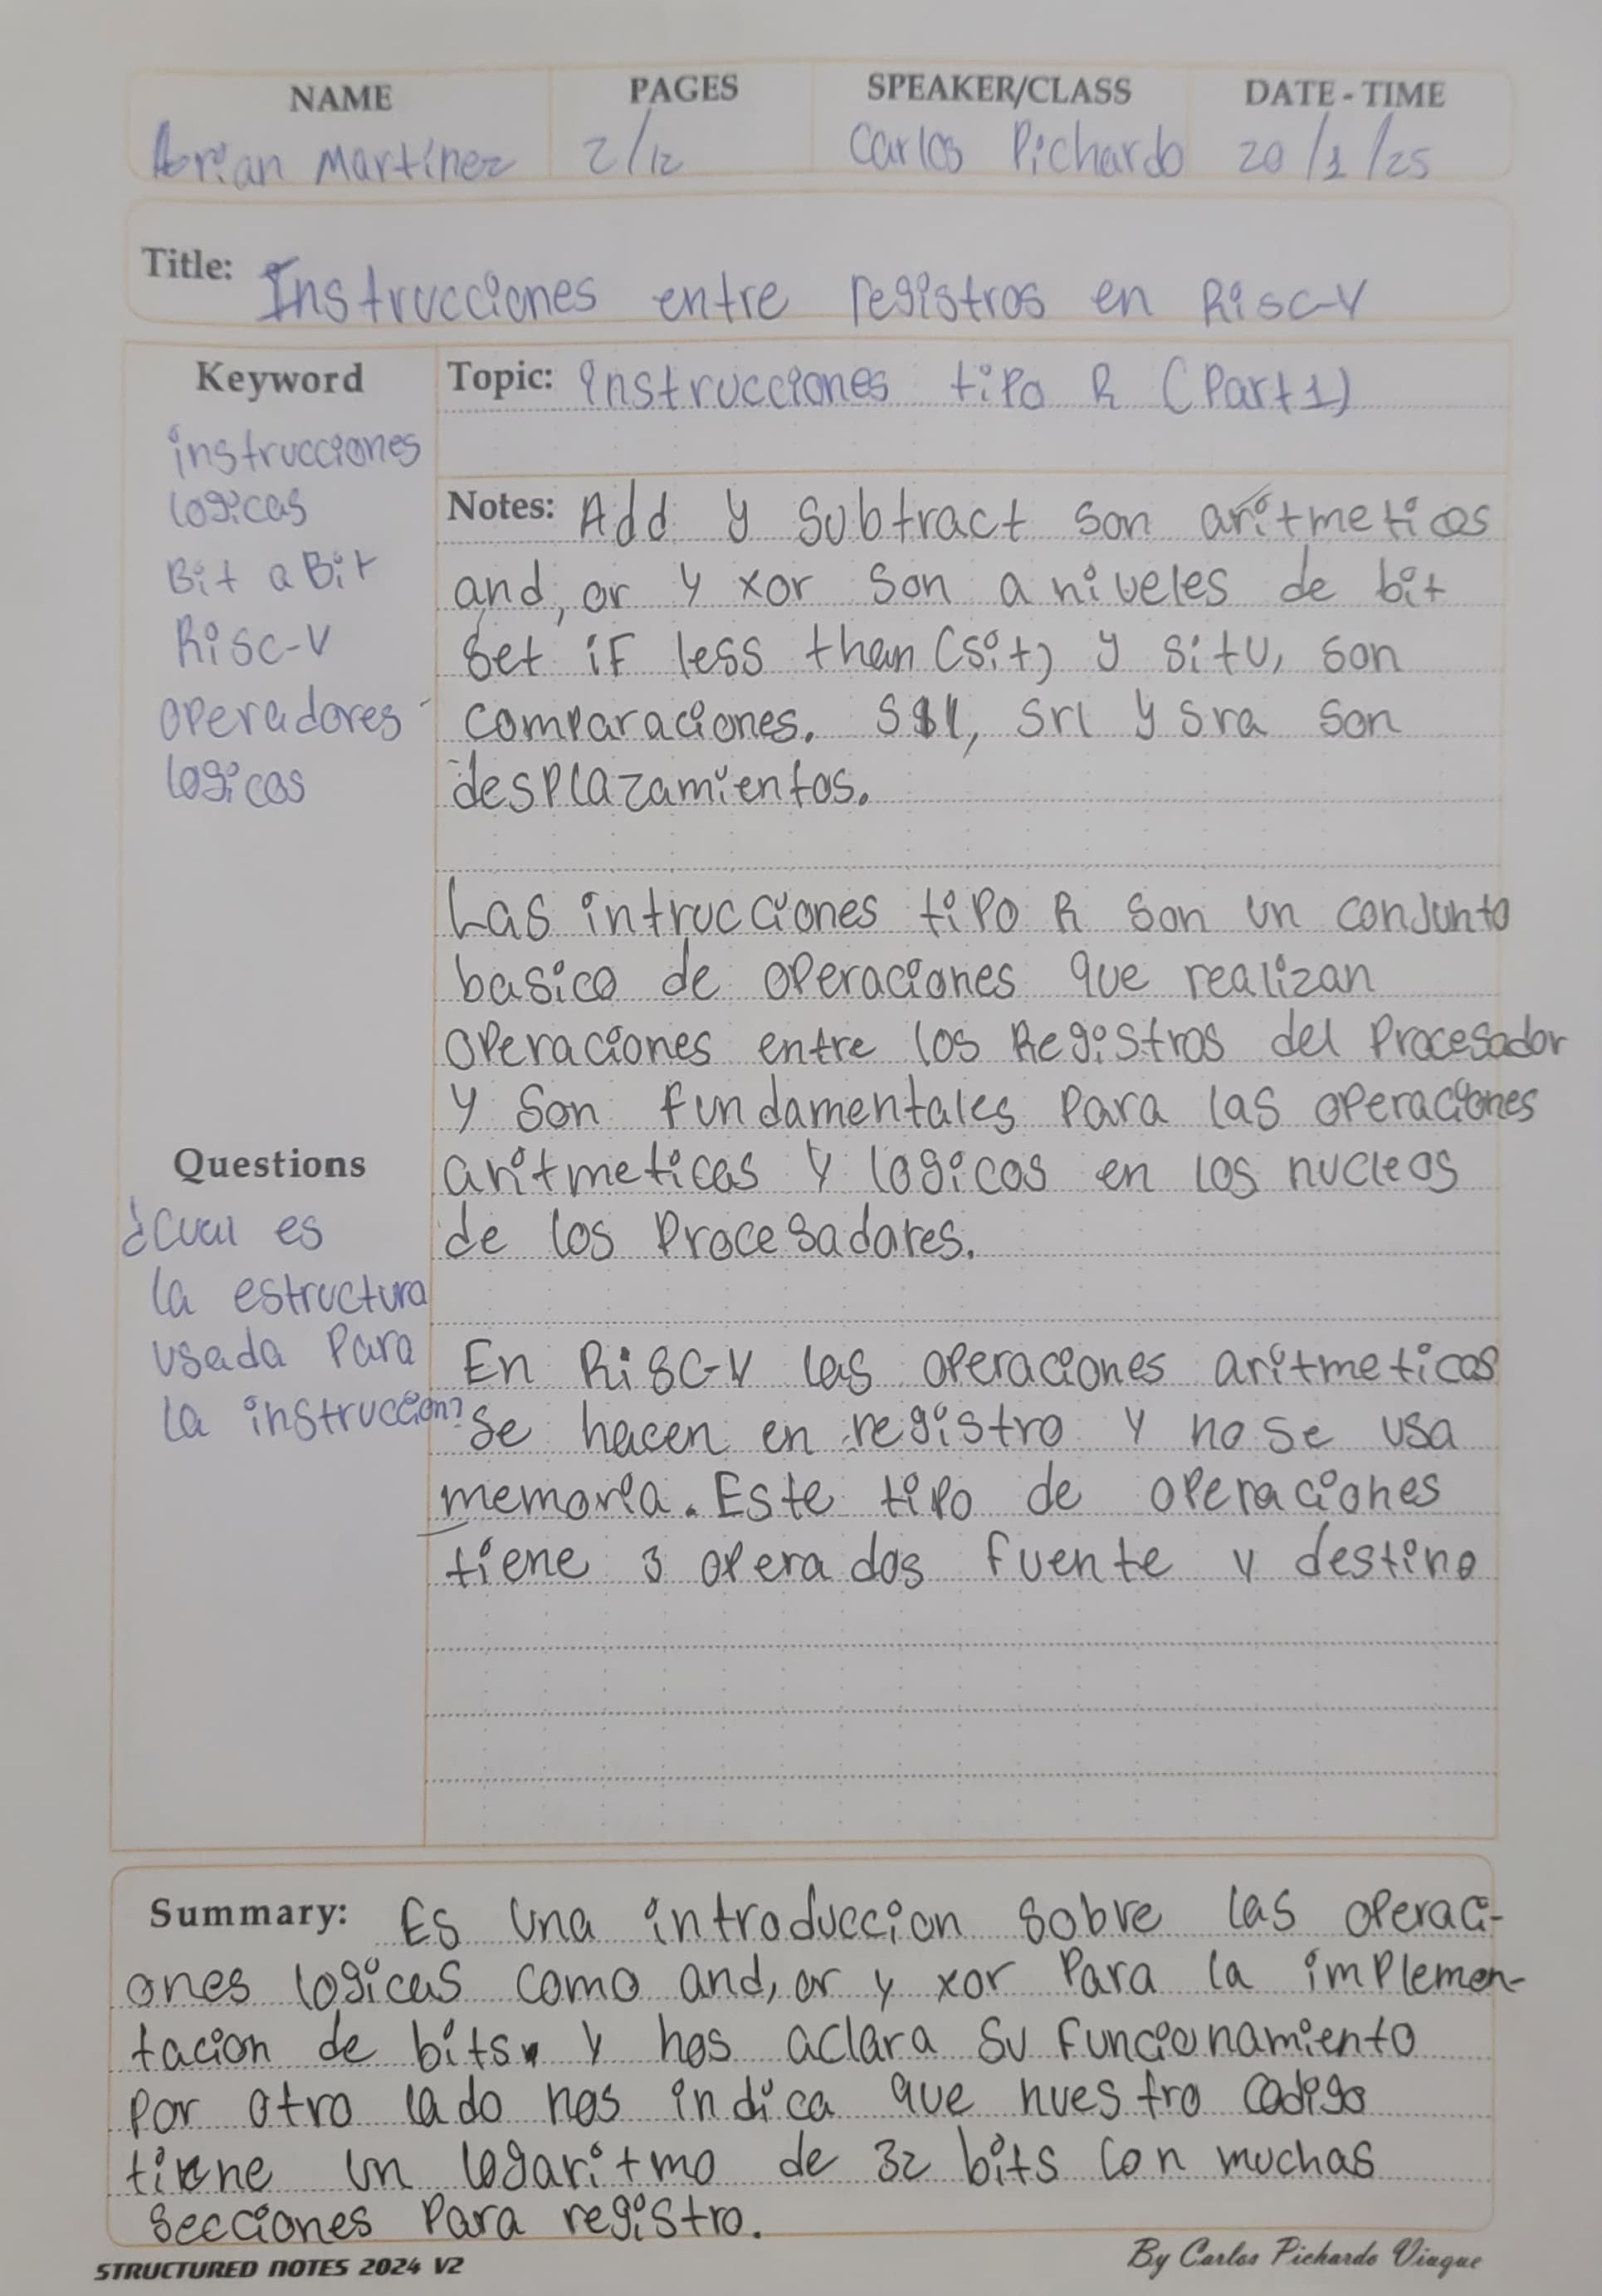 NAME PAGES SPEAKER/CLASS DATE - TIME
Adrian Martinez 2/12 Carlos Pichardo 20/1/25
Title: Instrucciones entre registros en Risc-V
Keyword
instrucciones
logicas
Bit a Bit
Risc-V
operadores
logicos
Topic: instrucciones tipo R (Part1)
Notes: Add y subtract son aritmeticas
and, or y xor son a niveles de bit
Set if less than (sit) y situ, son
comparaciones. Sll, srl y sra son
desplazamientos.
Las intrucciones tipo R son un conjunto
basico de operaciones que realizan
operaciones entre los Registros del Procesador
y son fundamentales para las operaciones
aritmeticas y logicos en los nucleos
de los Procesadores.
En Risc-V las operaciones aritmeticas
se hacen en registro y no se usa
memoria. Este tipo de operaciones
tiene 3 operados fuente y destino
Questions
¿Cual es
la estructura
usada para
la instruccion?
Summary: Es una introduccion sobre las operaci-
ones logicas como and, or y xor para la implemen-
tacion de bits y nos aclara su funcionamiento
por otro lado nos indica que nuestro codigo
tiene un logaritmo de 32 bits con muchas
secciones para registro.
STRUCTURED NOTES 2024 V2
By Carlos Pichardo Viuque